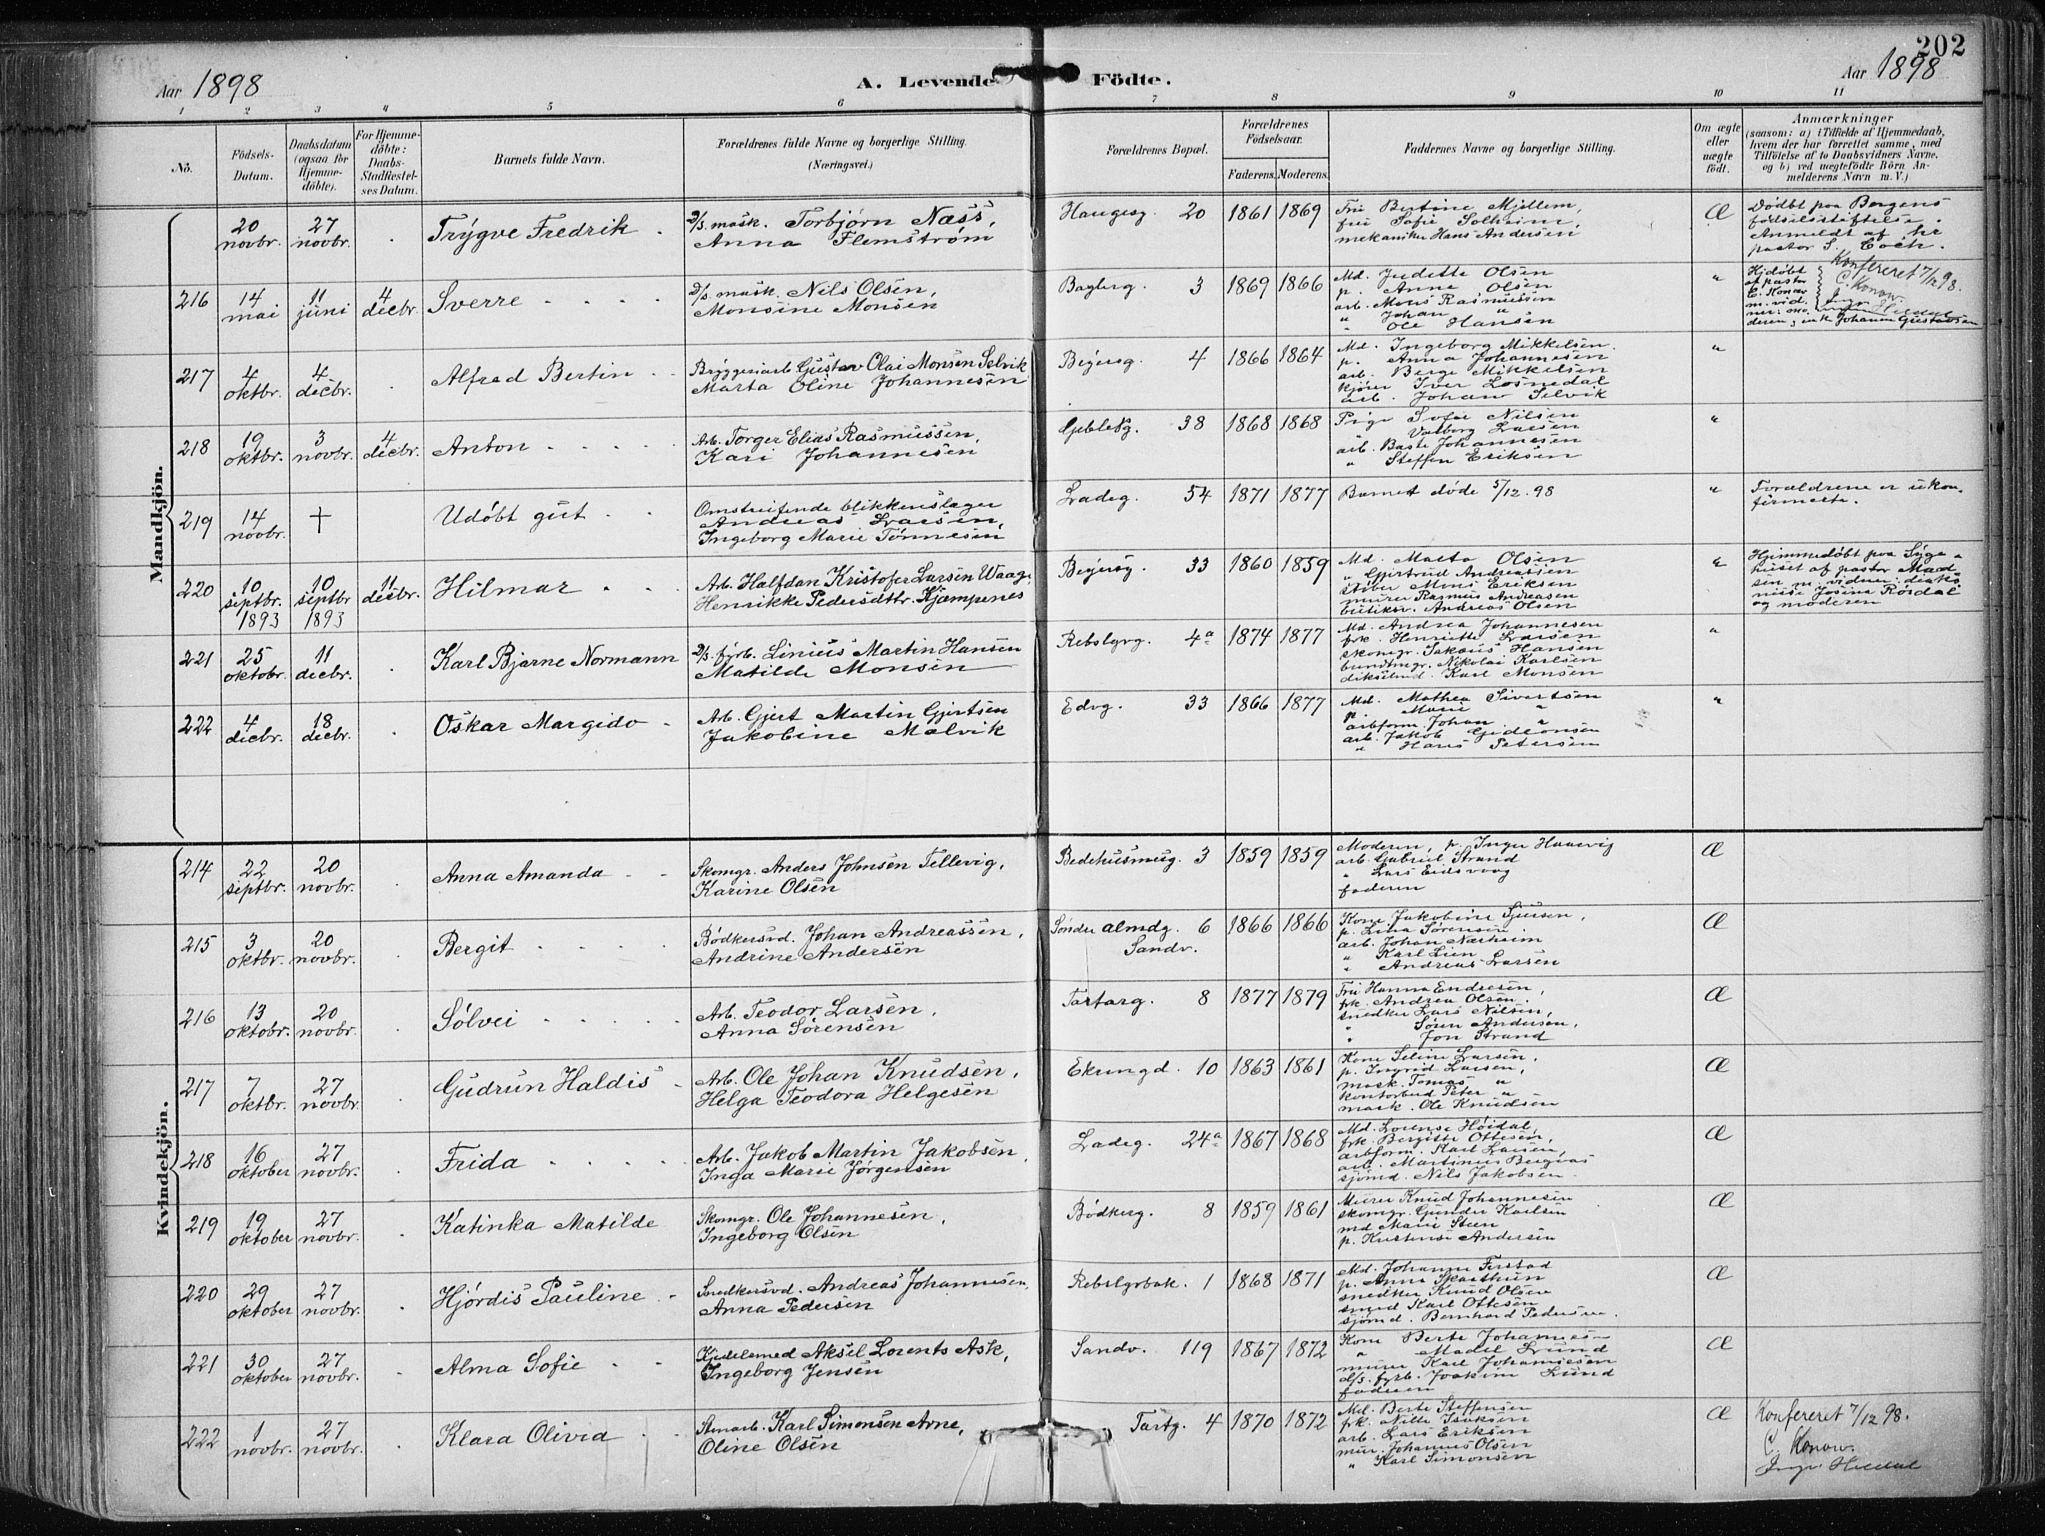 202
Aar 1898
A. Levende Födte.
Aar 1898
1 2 3 4 5 6 7 8 9 10 11
No.
Födsels-Datum.
Daabsdatum (ogsaa for Hjemme-döbte).
For Hjemme-döbte: Daabs-Stadfæstel-ses Datum.
Barnets fulde Navn.
Forældrenes fulde Navne og borgerlige Stilling.
(Næringsvei.)
Forældrenes Bopæl.
Forældrenes Födselsaar.
Faderens. Moderens.
Faddernes Navne og borgerlige Stilling.
Om ægte eller uægte födt.
Anmærkninger
(saasom: a) i Tilfælde af Hjemmedaab,
hvem der har forrettet samme, med
Tilföielse af to Daabsvidners Navne,
og b) ved uægtefödte Börn An-
melderens Navn m. V.)
Mandkjön.
20 novbr. 27 novbr. Trygve Fredrik
D/s. mask. Torbjørn Næss,
Anna Flemstrøm
Haugesg. 20 1861 1869
Fru Bertine Mjellem,
fru Sofie Solheim,
mekaniker Hans Andersen,
Æ
Døbt paa Bergens
fødselsstiftelse.
Anmeldt af hr
pastor S. Coch.
216 14 mai 11 juni 4 decbr. Sverre
D/s. mask. Nils Olsen,
Monsine Monsen
Bagerg. 3 1869 1866
Md. Juditte Olsen
p. Anne Olsen
arb. Mons Rasmussen
" Johan "
" Ole Hansen
"
Hjdøbt
af pastor
C. Konow
m. vid
ner: mo
deren, enke Johanne Gustavsen
Konfereret 7/12 98.
C. Konow.
217 4 oktbr. 4 decbr. Alfred Bertin
Bryggeriarb Gustav Olai Monsen Selvik
Marta Oline Johannesen
Beyersg. 4 1866 1864
Md. Ingeborg Mikkelsen.
p. Anna Johannesen
arb. Berge Mikkelsen
kjører Iver Losnedal
arb. Johan Selvik
"
218 19 oktbr. 3 novbr. 4 decbr. Anton
Arb. Torger Elias Rasmussen,
Kari Johannesen
38 1868 1868
Pige Sofie Nilsen
" Valborg Larsen
arb. Baste Johannesen
" Steffen Eriksen
"
219 14 novbr. † Udøbt gut
Omstreifende blikkenslager
Andreas Larsen,
Ingeborg Marie Tønnesen
Ladeg. 54 1871 1877
Barnet døde 5/12. 98
"
Forældrene er ukon-
firmerte.
220 10 septbr. 1893 10 septbr 1893 11 decbr. Hilmar
Arb. Halfdan Kristofer Larsen Waage
Henrikke Pedersdttr. Kjæmpenes
Beyersg. 33 1860 1859
Md. Marta Olsen
" Gjertrud Andreassen
støber Mons Eriksen
murer Rasmus Andreasen
butiksv. Andreas Olsen
"
Hjemmedøbt paa Syge-
huset af pastor Mad-
sen m. vidner: diako-
nisse Josina Rosdal
og moderen
221 25 oktobr. 11 decbr. Karl Bjarne Normann
D/s. fyrb. Linius Martin Hansen
Matilde Monsen
Rebslgrg. 4a 1874 1877
Md. Andrea Johannesen
frk. Henriette Larsen
skomgr. Jakob Hansen
bundtmgr. Nikolai Karlsen
Karl Monsen
"
222 4 decbr. 18 decbr. Oskar Margido
Arb. Gjert Martin Gjertsen
Jakobine Malvik
Edvg. 33 1866 1877
Md. Mathea Sivertsen
p. Marie "
arbform. Johan "
arb. Jakob Gideonsen
" Hans Petersen
"
Kvindekjön.
214 22 septbr. 20 novbr. Anna Amanda
Skomgr. Anders Johnsen Tellevig,
Karine Olsen
Bedehussmug. 3 1859 1859
Moderen, p. Inger Haarvig
arb. Gabriel Strand
" Lars Eidsvaag
faderen
Æ
215 3 oktbr. 20 novbr. Bergit
Bødkersvd. Johan Andreassen,
Andrine Andersen
Søndre almdg. 6
Sandv.
1866 1866
Kone Jakobine Sjursen,
p. Lina Sørensen.
arb. Johan Nærheim
" Karl Lien
" Andreas Larsen
Æ
216 13 oktobr. 20 novbr. Sølvei
Arb. Teodor Larsen,
Anna Sørensen
Tartarg. 8 1877 1879
Fru Hanna Endresen,
frk. Andrea Olsen.
snedker Lars Nilsen,
" Søren Andersen,
" Jon Strand
Æ
217 7 oktbr. 27 novbr. Gudrun Haldis
Arb. Ole Johan Knudsen,
Helga Teodora Helgesen
Ekrengd. 10 1863 1861
Kone Seline Larsen,
p. Ingrid Larsen,
mask. Tomas "
kontorbud Peter "
mask. Ole Knudsen
Æ
218 16 oktober 27 novbr. Frida
Arb. Jakob Martin Jakobsen,
Inga Marie Jørgensen
Ladeg. 24a 1867 1868
Md. Lorense Høidal,
frk. Bergitte Ottesen,
arbform. Karl Larsen,
arb. Martinus Bergaas
sjømd. Nils Jakobsen.
Æ
219 19 oktober 27 novbr. Katinka Matilde
Skomgr. Ole Johannesen,
Ingeborg Olsen
Bødkerg. 8 1859 1861
Murer Knud Johannesen
skomgr. Gunder Karlsen
md Marie Steen
p. Kristense Andersen
Æ
220 29 oktober 27 novbr. Hjørdis Pauline
Snedkersvd. Andreas Johannesen,
Anna Pedersen
Rebslgrbak. 1 1868 1871
Md. Johanne Fristad
p. Anna
snedker Knud Olsen
smed Karl Ottesen
sjømd. Bernhard Pedersen.
Æ
221 30 oktober 27 novbr. Alma Sofie
Kjedelsmed Aksel Lorents Ask,
Ingeborg Jensen
Sandv. 119 1867 1872
Kone Berte Johannesen
" Madel Lund
murer Karl Johannesen
d/s. fyrb. Joakim Lund
faderen
Æ
222 1 novbr. 27 novbr. Klara Olivia
Stenarb. Karl Simonsen Arne,
Oline Olsen
Tartg. 4 1870 1872
Md. Berte Steffensen
frk. Nille Isaksen
arb. Lars Eriksen
mur. Johannes Olsen
" Karl Simonsen
Æ
Konfereret 7/12 98.
C. Konow.